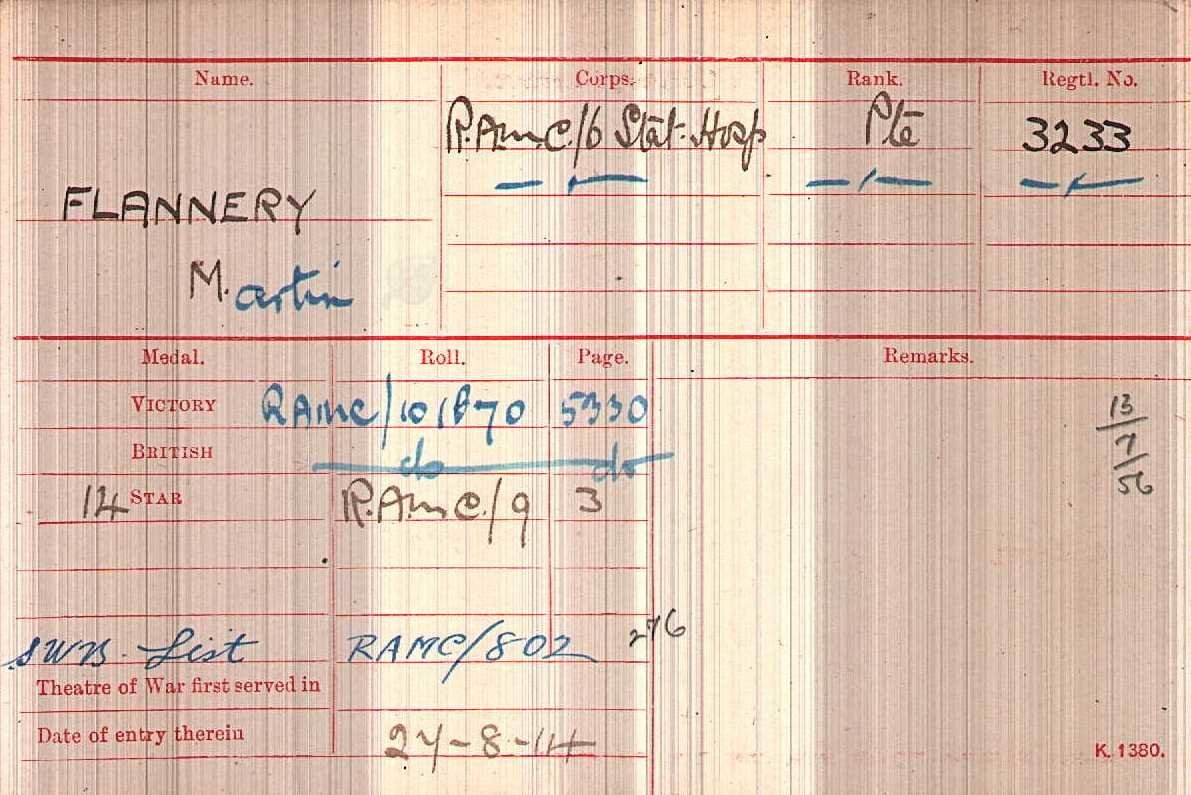 Name. Corps. Rank. Regtl. No.
R.A.M.C./6 Stat. Hosp Pte 3233
FLANNERY
Martin
Medal. Roll. Page. Remarks.
VICTORY RAMC/101B70 5330 13/7/56
BRITISH do do
14 STAR R.A.M.C./9 3
SWB. List RAMC/802 276
Theatre of War first served in
Date of entry therein 24-8-14
K. 1380.